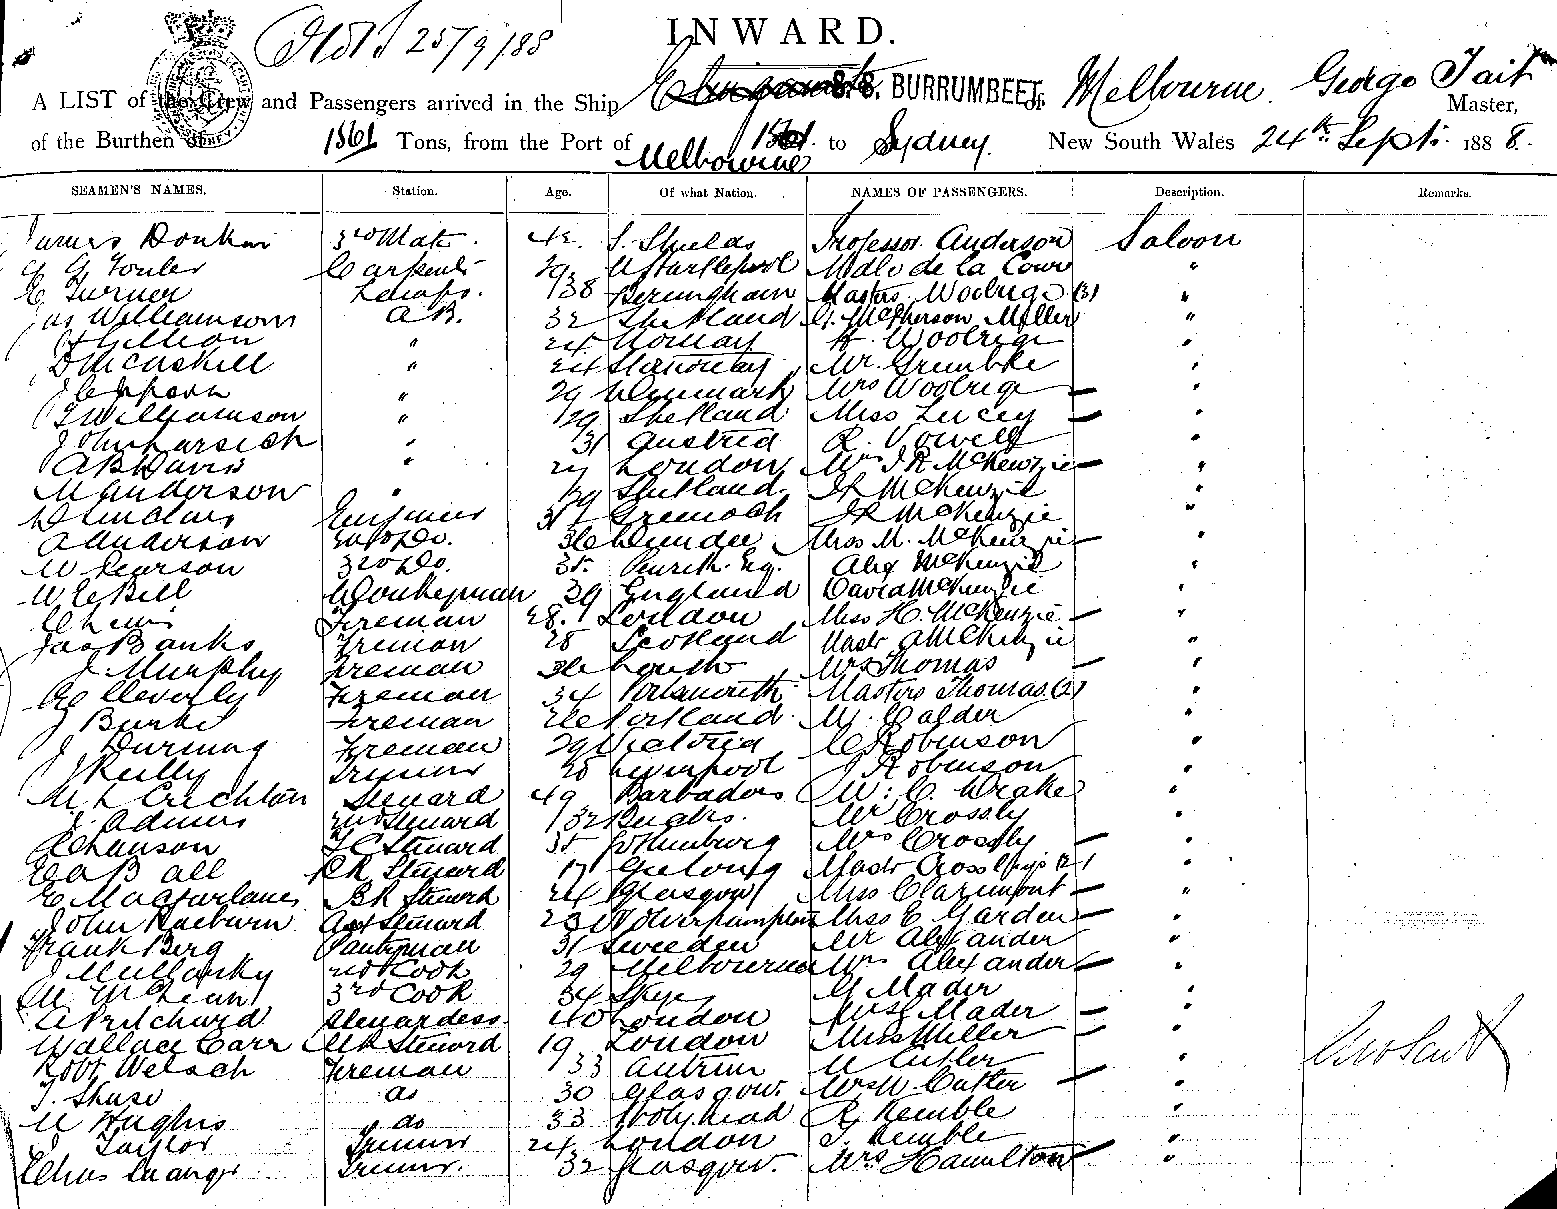 25/9/88
INWARD.
A LIST of the Crew and Passengers arrived in the Ship S.S. BURRUMBEET Melbourne George Tait Master,
of the Burthen of 1561 Tons, from the Port of Melbourne to Sydney New South Wales 24th Sept. 1888.
SEAMEN'S NAMES. Station. Age. Of what Nation. NAMES OF PASSENGERS. Description. Remarks.
James 3rd Mate 42 S. Shields Professor Anderson Saloon
Carpenter 29 W Hartlepool Mdle de la Cour "
C Turner Lamps. 38 Birmingham Masters Woolrige (3) "
Jas Williamson A.B. 32 Shetland G. McPherson Miller "
" 24 Norway H. Woolrige "
D McCaskill " 24 Stornoway Mr Grumbke "
" 29 Denmark Mrs Woolrige "
T Williamson " 29 Shetland Miss Lucey "
John " 31 Austria R. Vowell "
A B Davis " 27 London Mrs J R McKenzie "
M Anderson " 29 Shetland McKenzie "
D Sinclair Engineer 37 Greenock McKenzie "
A Anderson 2nd Do. 36 Dundee Miss M. McKenzie "
W Pearson 3rd Do. 35 Alex McKenzie "
W E Bill Donkeyman 39 England David McKenzie "
Fireman 28 London Miss H. McKenzie "
Jas Banks Fireman 28 Scotland Mastr A McKenzie "
J. Murphy Fireman 36 Louth Mrs Thomas "
Cleverly Fireman 34 Portsmouth Masters Thomas (2) "
J Burke Fireman 26 Portland M. Calder "
J Fireman 29 Victoria C Robinson "
J Reilly Trimmer 28 Liverpool J Robinson "
M L Crichton Steward 49 Barbados W. C. Drake "
J. Adams 2nd Steward 32 Bucks. Mr Crossly "
C Hanson F C Steward 35 Mrs Crossly "
E A Ball P R Steward 17 Geelong Mastr Crosslys (2) "
E Macfarlane B R Steward 24 Glasgow Miss Claremont "
John Raeburn Asst Steward 23 Wolverhampton Miss E Garden "
Frank Berg Pantryman 31 Sweeden Mr Alexander "
J Mullanky 2nd Cook 29 Melbourne Mrs Alexander "
M McLean 3rd Cook 34 Skye G Mader "
A Pritchard Stewardess 40 London Mrs G Mader "
Wallace Carr Steward 19 London Miss Miller "
Robt Welsch Fireman 33 Antrim W Cutler "
T. Shuse do 30 Glasgow Mrs W Cutler "
W Hughes do 33 Holyhead R Kemble "
J Taylor Trimmer 24 London T. Kemble "
Chas Trimmer. 32 Glasgow. Mrs Hamilton "